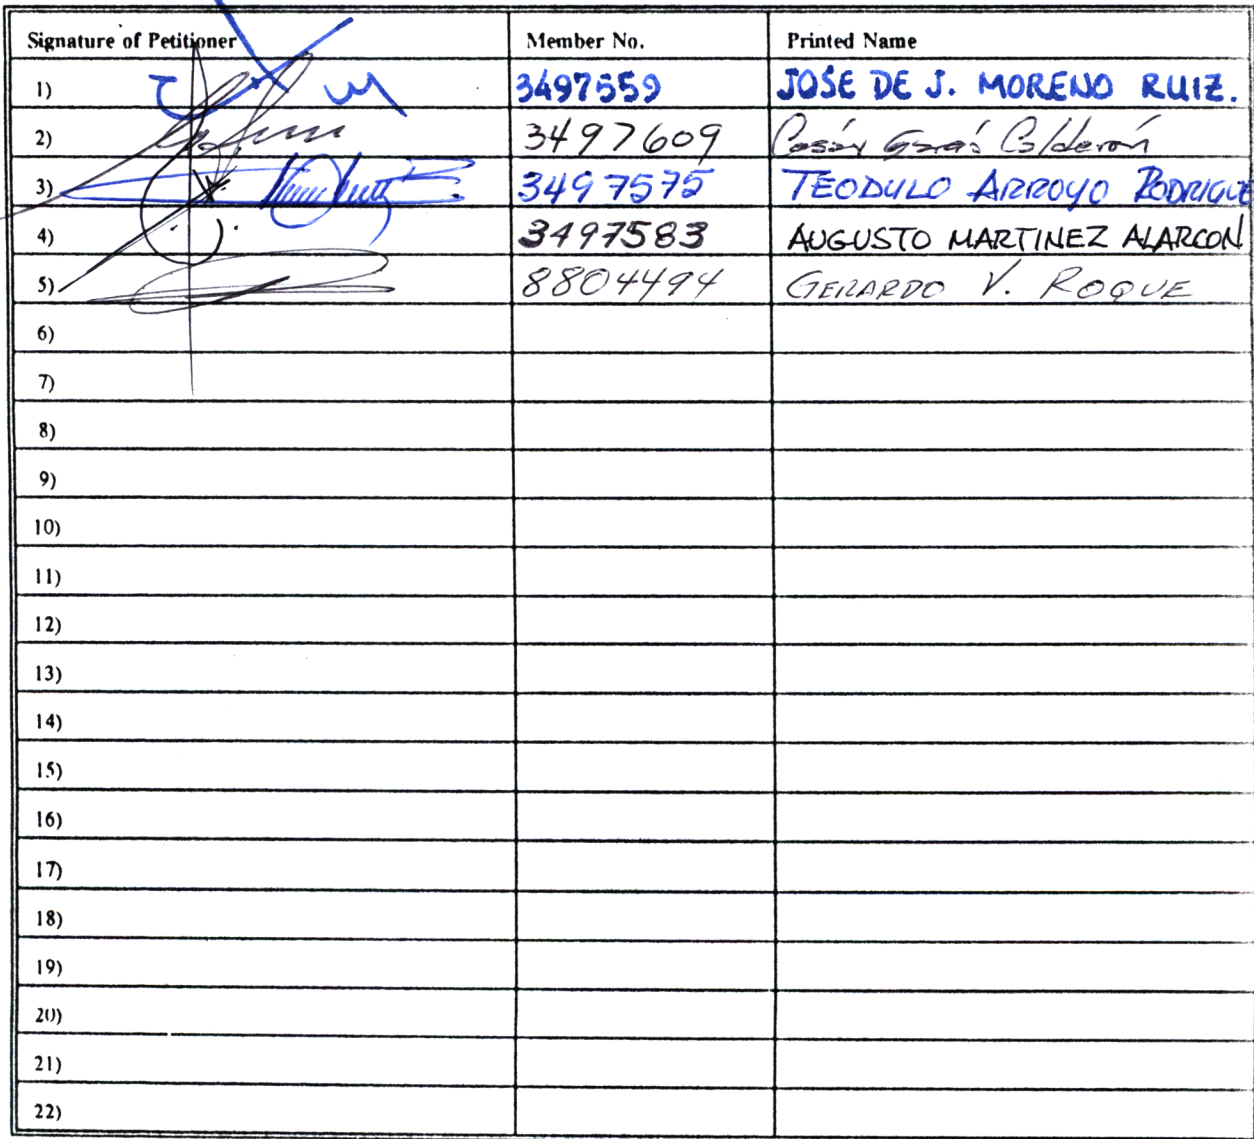 Signature of Petitioner Member No. Printed Name
1) 3497559 JOSE DE J. MORENO RUIZ.
2) 3497609 Calderón
3) 3497575 TEODULO ARROYO RODRIGUE
4) 3497583 AUGUSTO MARTINEZ ALARCON
5) 8804494 GERARDO V. ROQUE
6)
7)
8)
9)
10)
11)
12)
13)
14)
15)
16)
17)
18)
19)
20)
21)
22)